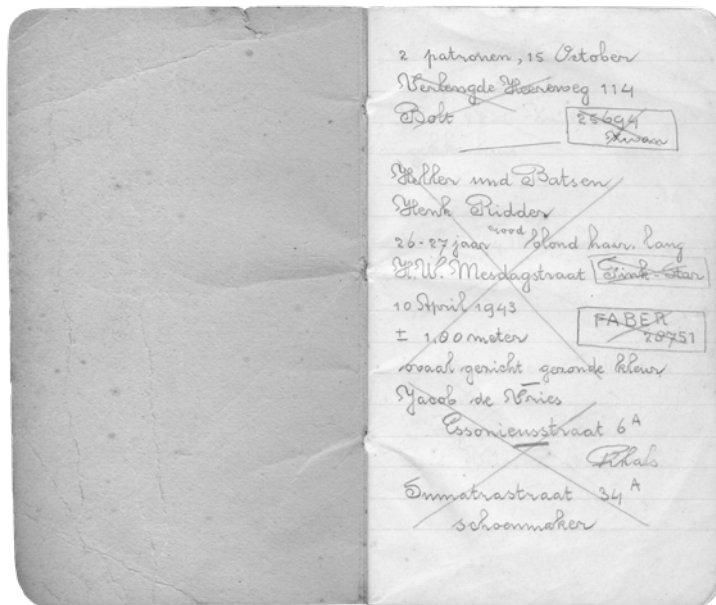 2 patronen, 15 October
Verlengde Heereweg 114
Bolt
25694
Heller und Batsen
Henk Ridder
rood
26-27 jaar blond haar. lang
H.W. Mesdagstraat
10 April 1943
FABER
28751
± 1.80 meter
ovaal gezicht gezonde kleur
Jacob de Vries
Essoniusstraat 6A
Sumatrastraat 34A
schoenmaker